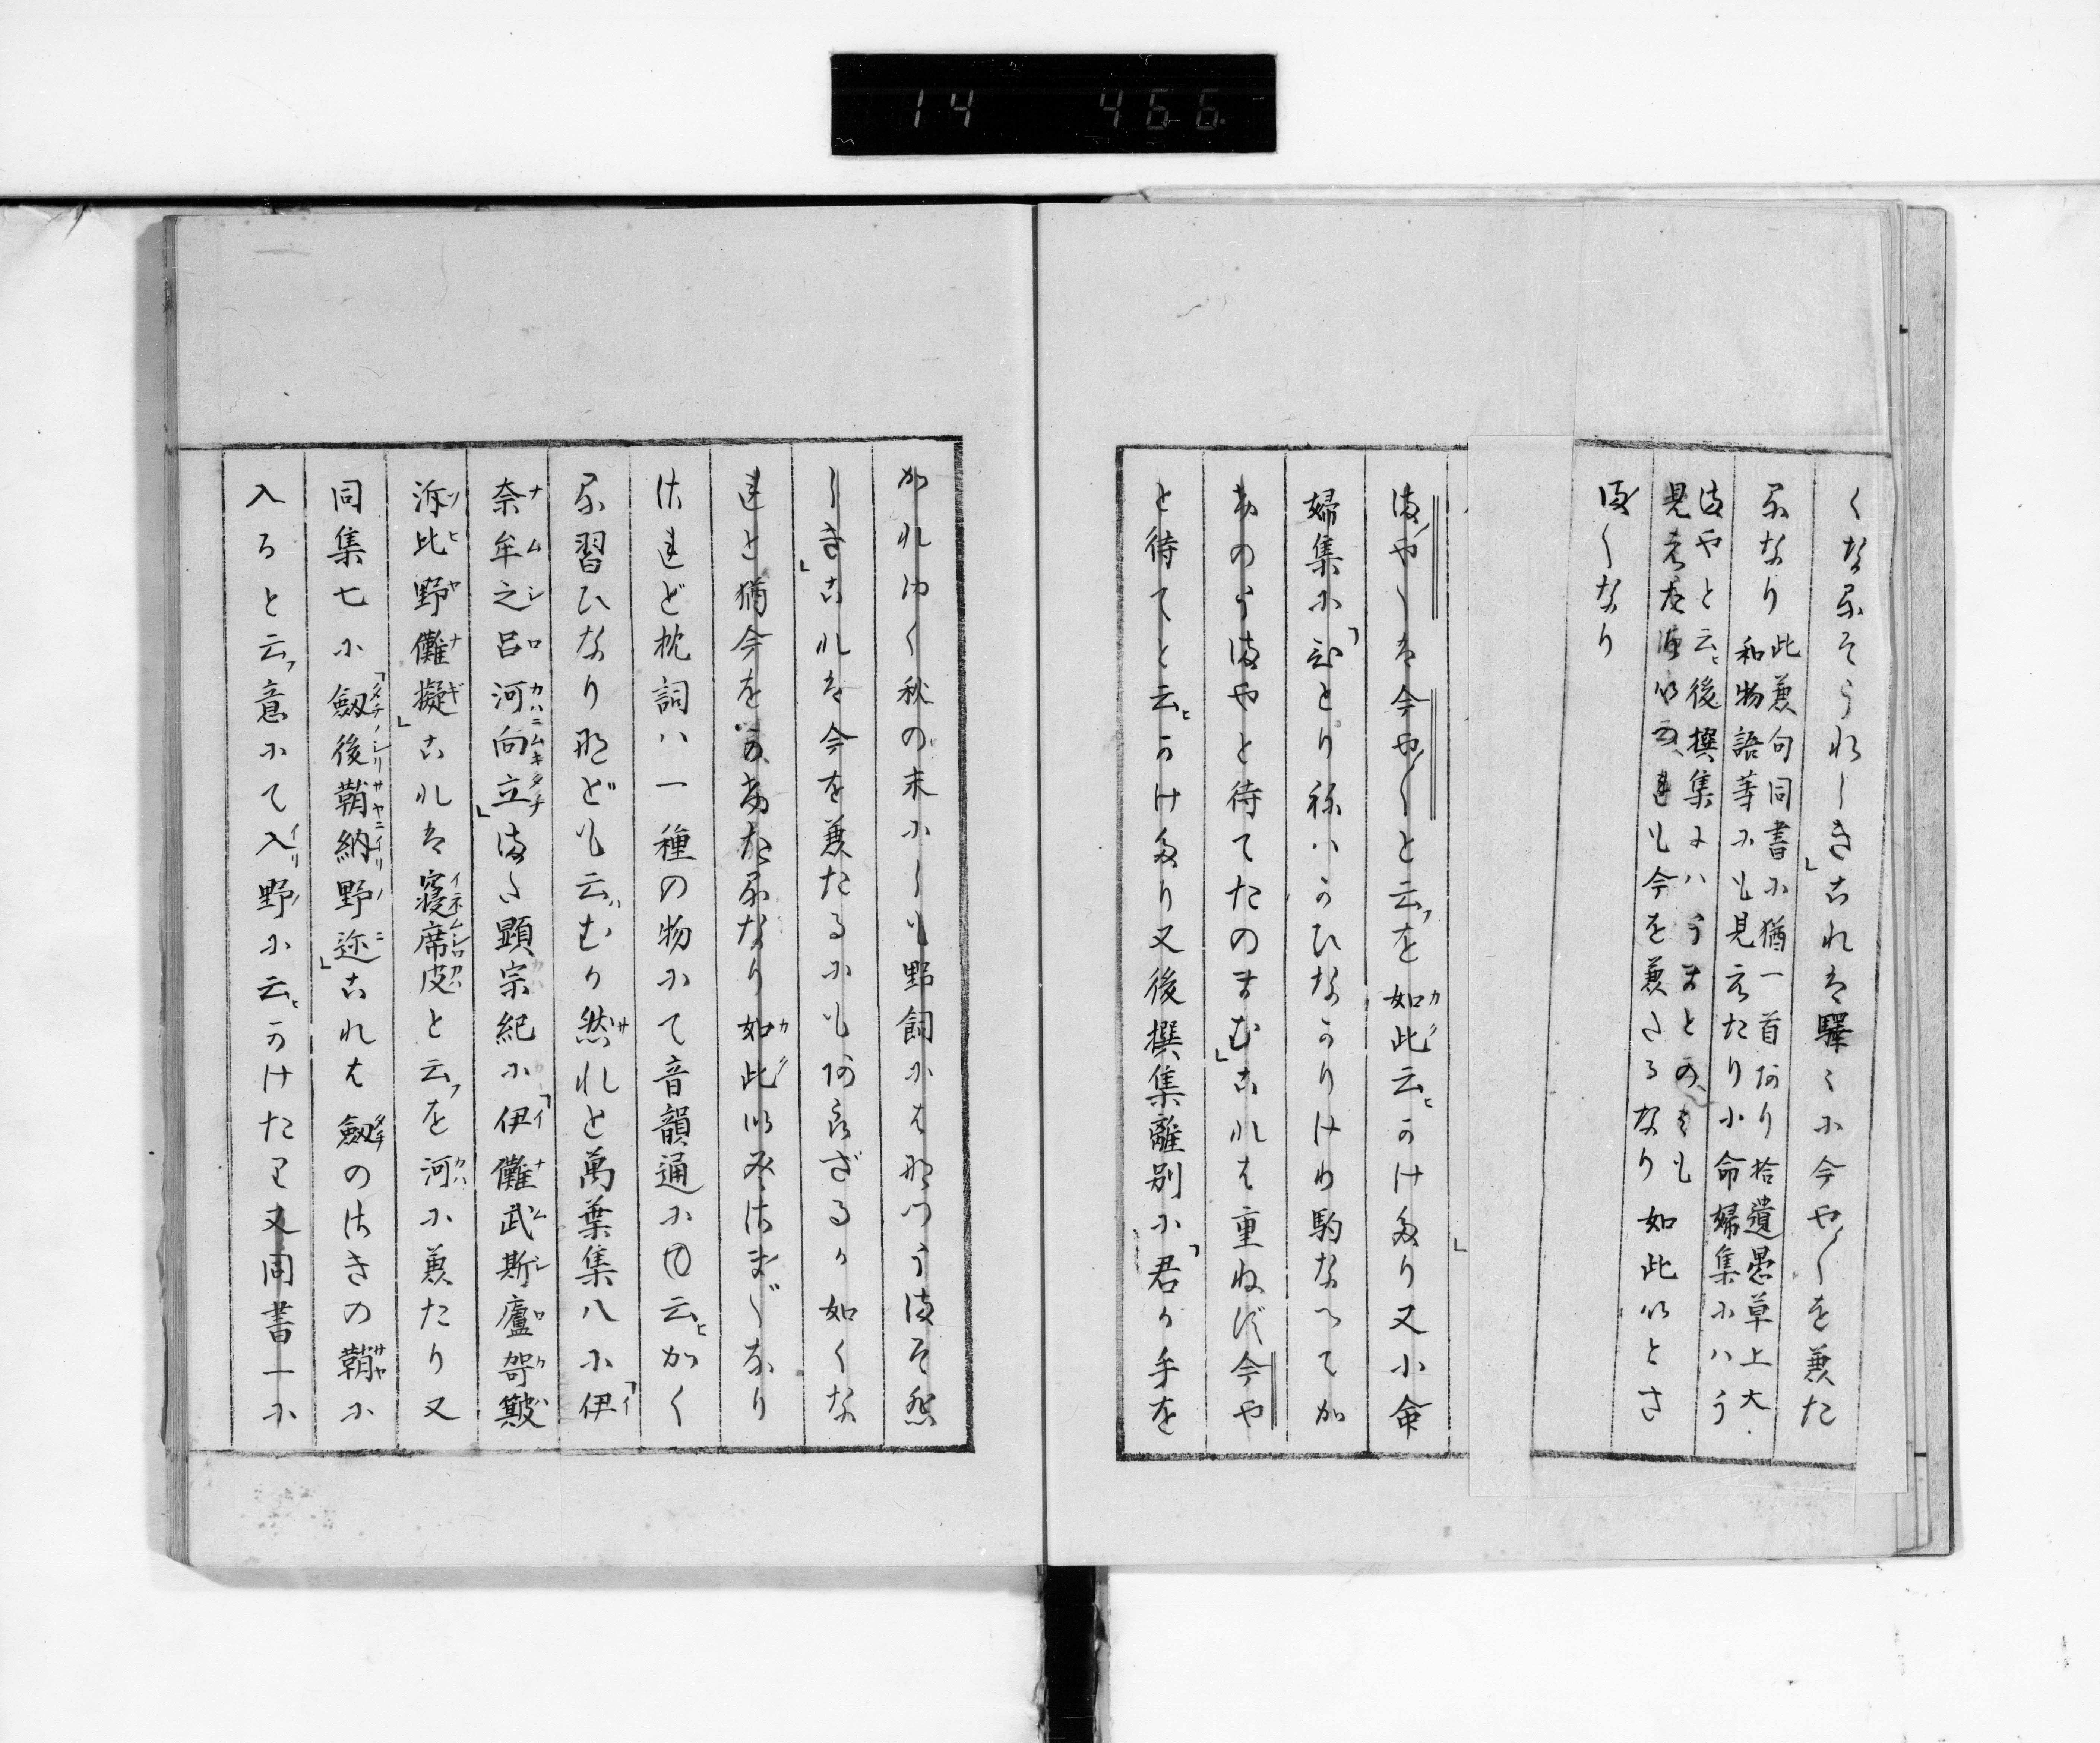 14 466
くなるそうれしき」これは驛々に今や〱を兼た
るなり
此兼句同書に猶一首あり拾遺愚草上大
和物語等にも見えたり小命婦集にハう
まやと云ヒ後撰集にハうまとのミも
見えたれども今を兼さるなり如此いとさ
ま〲なり
まや〱は今や〱と云フを如此云ヒかけたり又小命
婦集に「ひとり祢ハわひなかりけり駒なへてか
あのうまやと待てたのまむ」これは重ねず今や
と待てと云ヒかけたり又後撰集離別に「君が手を
かれゆく秋の末にしも野飼にはなつうまそ悲
しき」これは今を兼たるにもあらざるが如くな
れと猶今を兼たるなり如此いとさま〲なり
されど枕詞ハ一種の物にて音韻通に云ヒかく
る習ひなりなども云ハむか然れど萬葉集八に「伊
奈牟之呂河向立」また顕宗紀に「伊儺武斯廬呵簸
泝比野儺擬」これは寝席皮と云フを河に兼たり又
同集七に「劔後鞘納野迩」これは劔のさきの鞘に
入ると云フ意にて入野に云ヒかけたり又同書一に